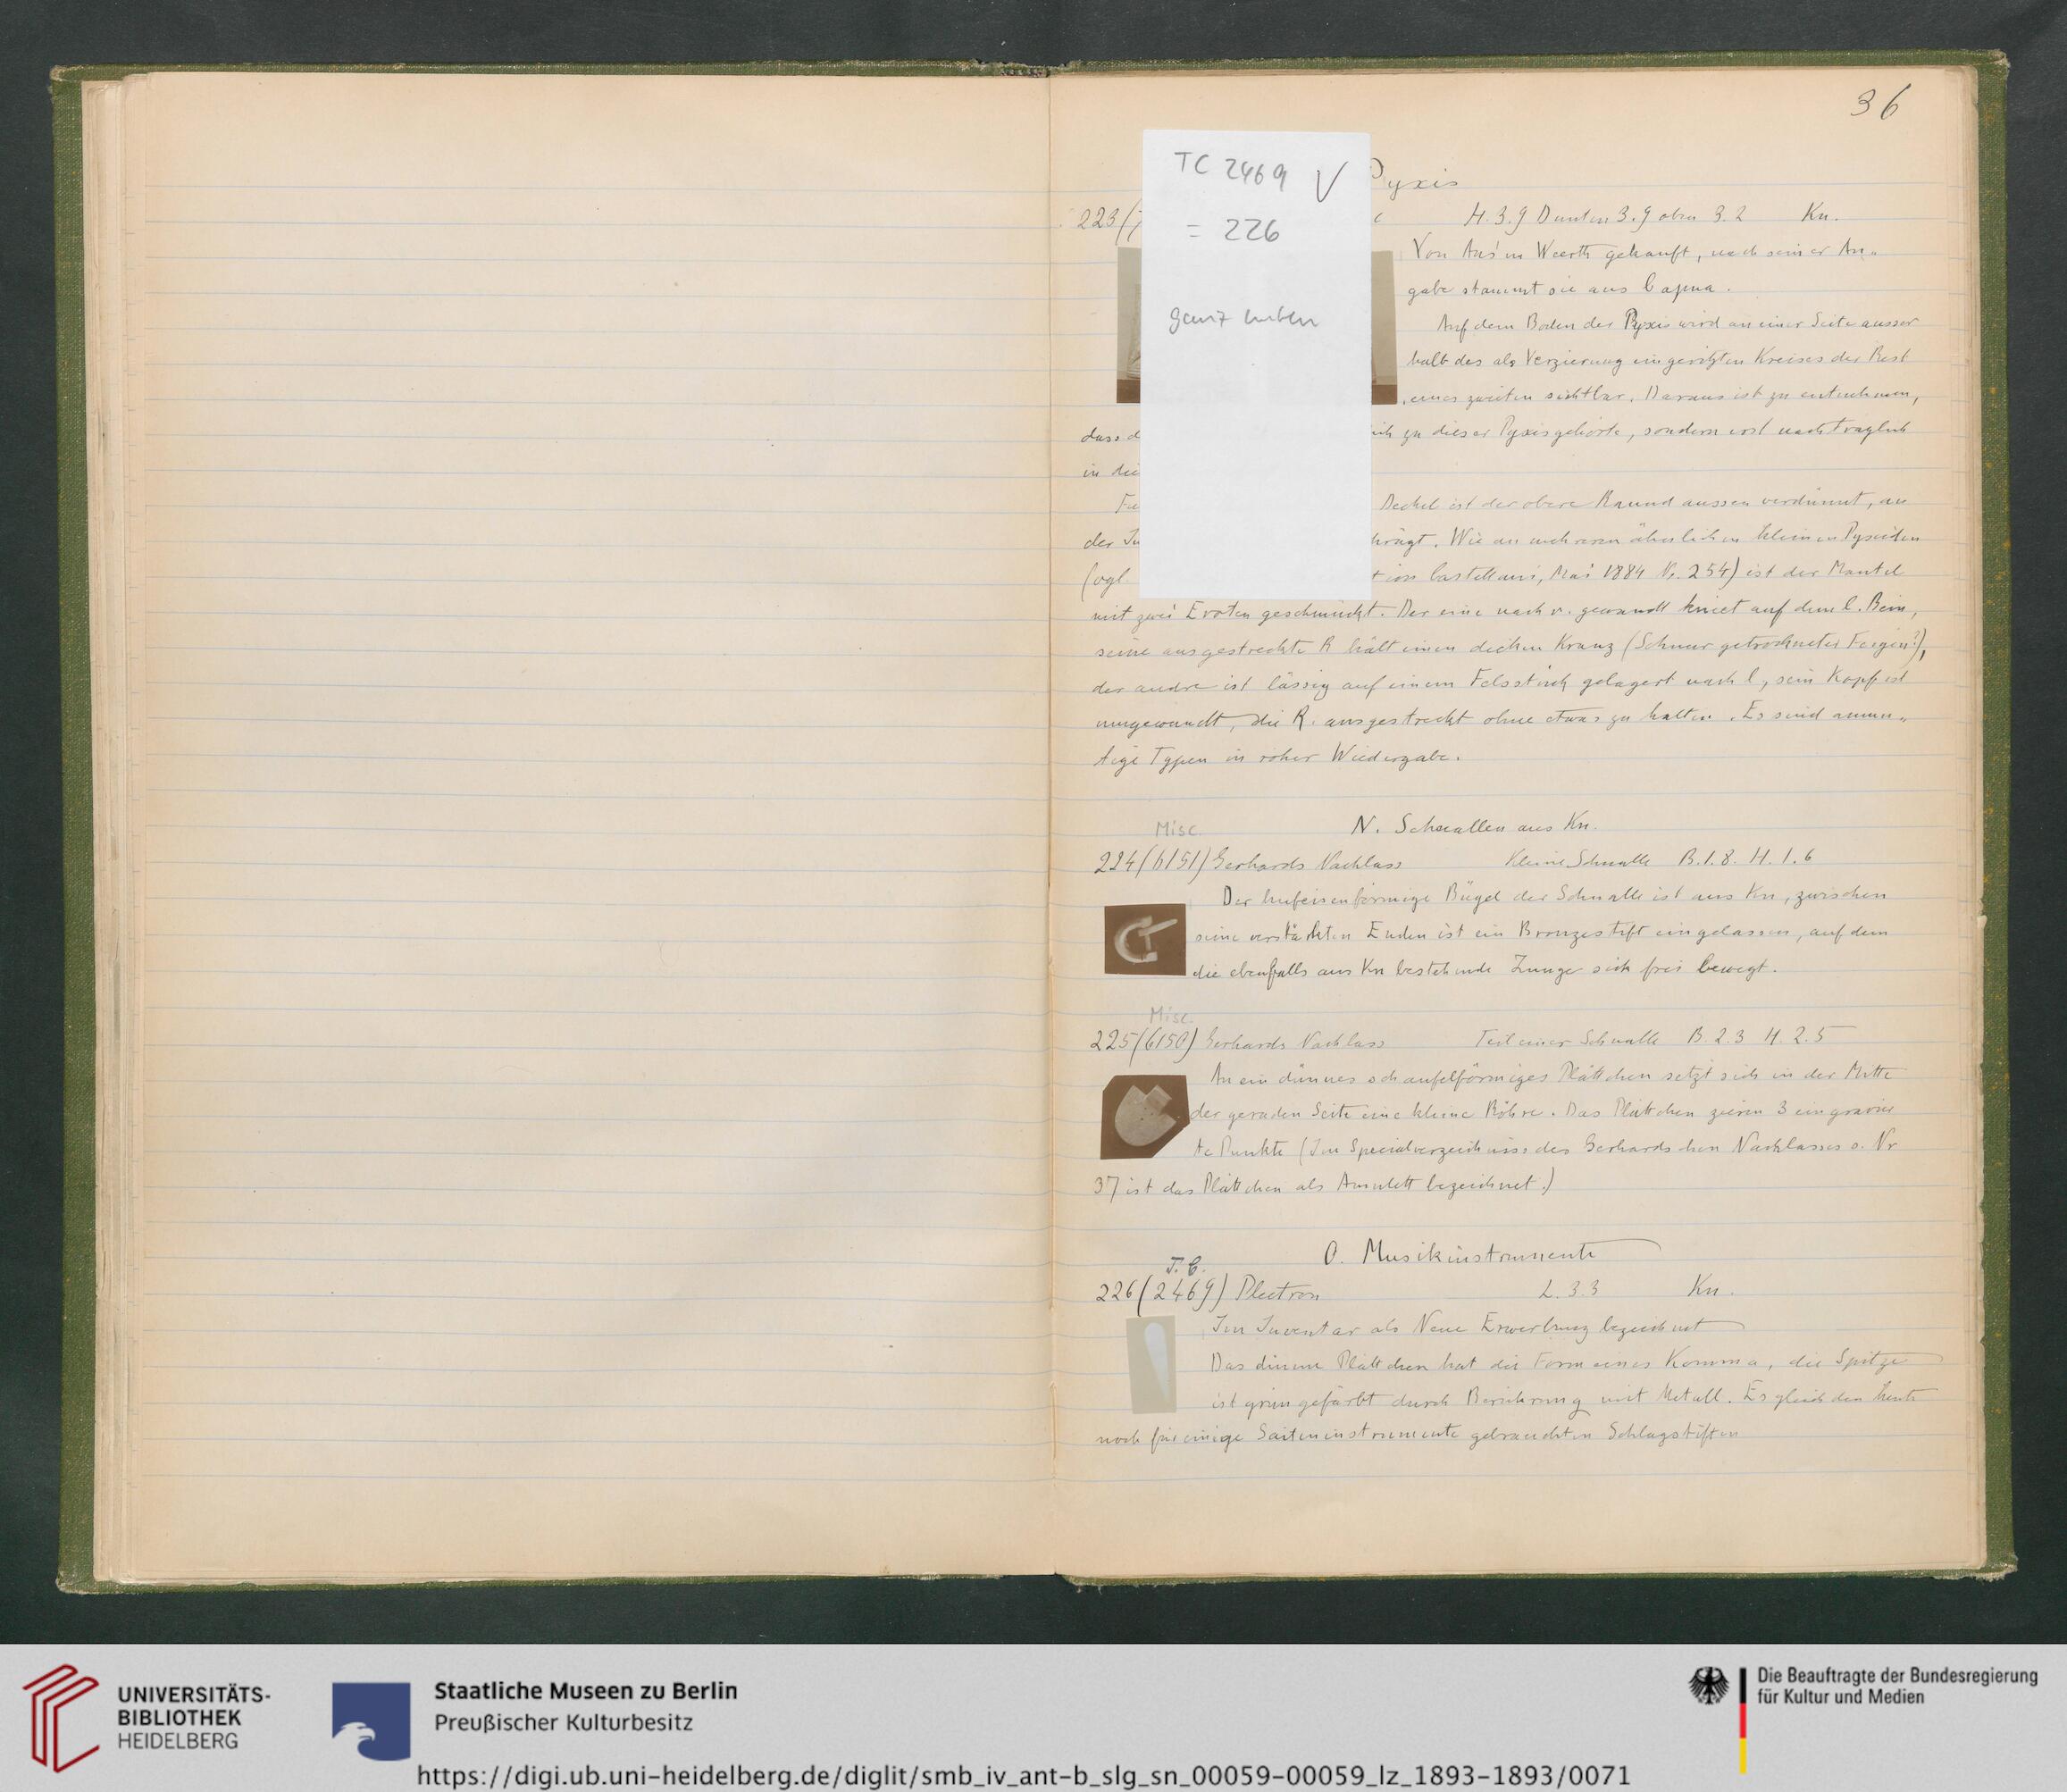 36
TC 2469 V
= 226
ganz
Pyxis
223 (7
H. 3.9 D unten 3.9 oben 3.2 Kn.
Von Aus'm Weerth gekauft, nach seiner An-
gabe stammt sie aus Capua.
Auf dem Boden der Pyxis wird an einer Seite ausser
halb des als Verzierung eingeritzten Kreises der Rest
eines zweiten sichtbar. Daraus ist zu entnehmen,
dass d
zu dieser Pyxis gehörte, sondern erst nachträglich
in die
Deckel ist der obere Raund aussen verdünnt, an
der In
hrägt. Wie an mehreren ähnlichen kleinen Pyxiden
(vgl.
tion Castellani, Mai 1884 N. 254) ist der Mantel
mit zwei Eroten geschmückt. Der eine nach r. gewandt kniet auf dem l. Bein,
seine ausgestreckte R hält einen dicken Kranz (Schnur getrockneter Feigen?),
der andre ist lässig auf einem Felsstück gelagert nach l, sein Kopf ist
umgewandt, die R. ausgestreckt ohne etwas zu halten. Es sind anmu-
tige Typen in roher Wiedergabe.
N. Schnallen aus Kn.
Misc.
224 (6151) Gerhards Nachlass Kleine Schnalle B. 1.8. H. 1.6
Der hufeisenförmige Bügel der Schnalle ist aus Kn, zwischen
seine verstärkten Enden ist ein Bronzestift eingelassen, auf dem
die ebenfalls aus Kn bestehende Zunge sich frei bewegt.
Misc.
225 (6150) Gerhards Nachlass Teil einer Schnalle B. 2.3 H. 2.5
An ein dünnes schaufelförmiges Plättchen setzt sich in der Mitte
der geraden Seite eine kleine Röhre. Das Plättchen zieren 3 eingravier
te Punkte (Im Specialverzeichniss des Gerhardschen Nachlasses s. Nr
37 ist das Plättchen als Amulett bezeichnet.)
O. Musikinstrumente
T. C.
226 (2469) Plectron L. 3.3 Kn.
Im Inventar als Neue Erwerbung bezeichnet
Das dünne Plättchen hat die Form eines Komma, die Spitze
ist grün gefärbt durch Berührung mit Metall. Es gleicht den heute
noch für einige Saiteninstrumente gebrauchten Schlagstiften
UNIVERSITÄTS-
BIBLIOTHEK
HEIDELBERG
Staatliche Museen zu Berlin
Preußischer Kulturbesitz
Die Beauftragte der Bundesregierung
für Kultur und Medien
https://digi.ub.uni-heidelberg.de/diglit/smb_iv_ant-b_slg_sn_00059-00059_lz_1893-1893/0071